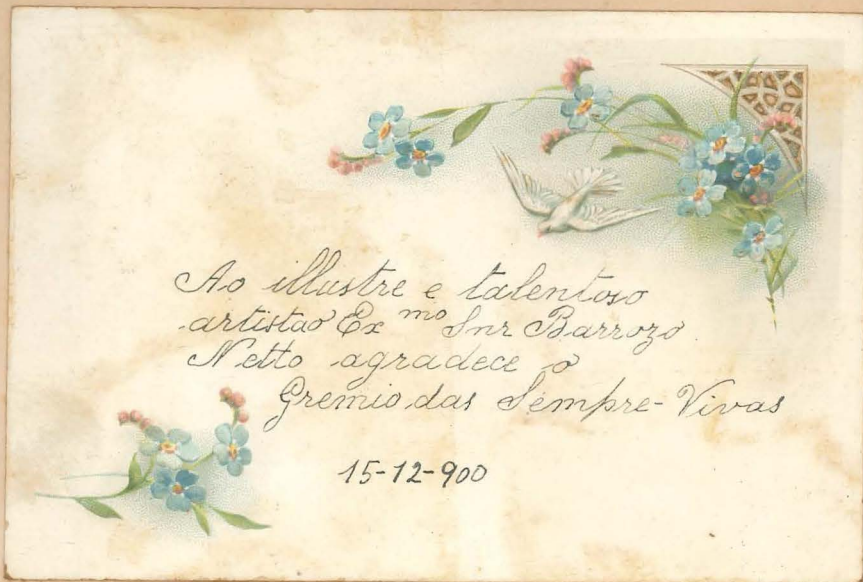 Ao illustre e talentoso
artista o Ex mo Snr Barrozo
Netto agradece o
Gremio das Sempre-Vivas
15-12-900